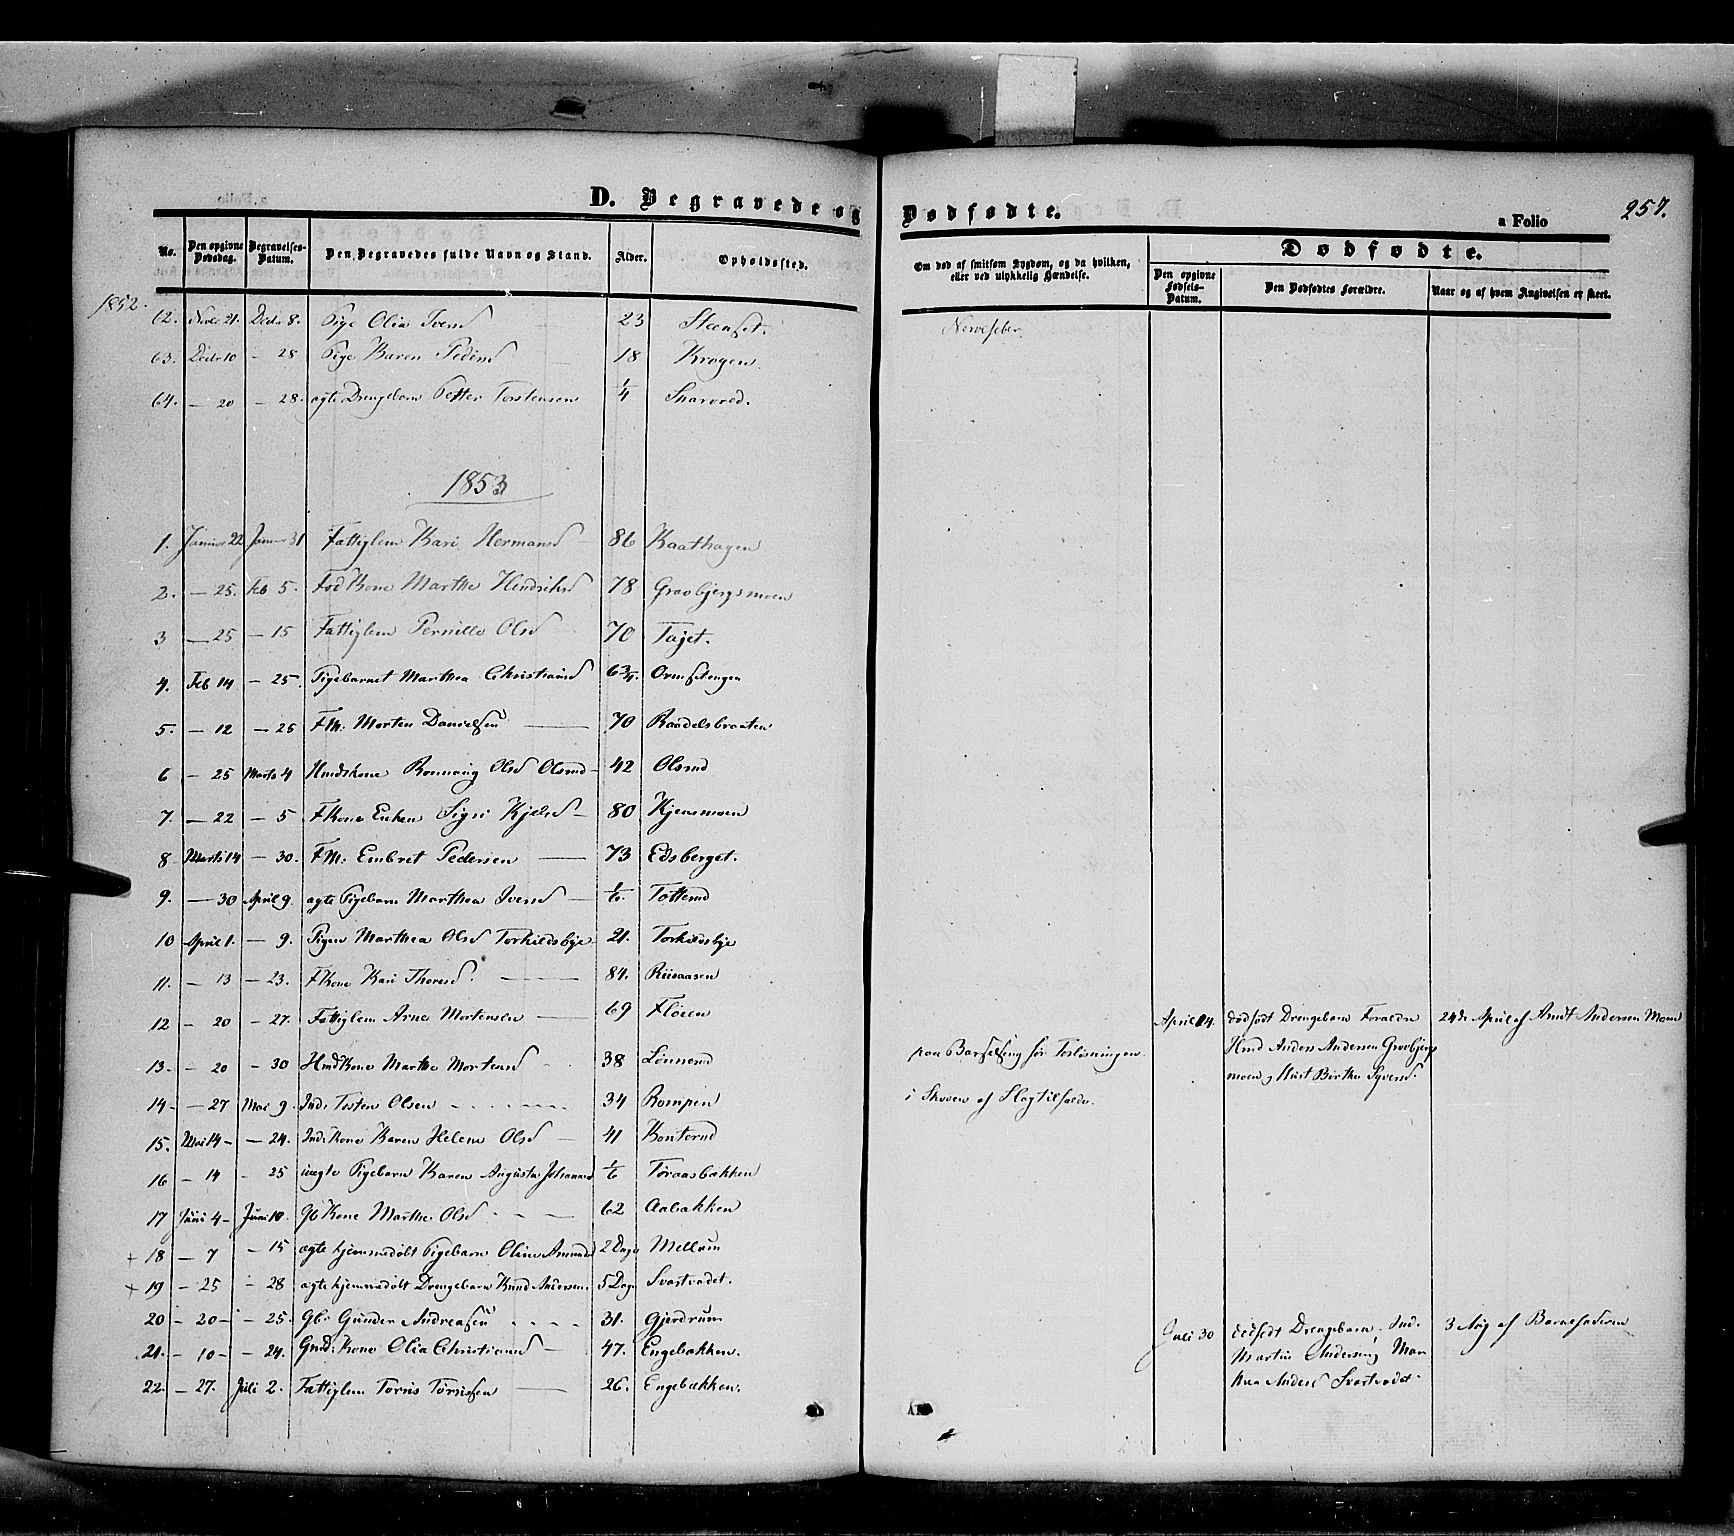 D. Begravede og Dødfødte.
a Folio 257.
No. Den opgivne Dødsdag. Begravelses-Datum. Den Begravedes fulde Navn og Stand. Alder. Opholdssted. Om død af smitsom Sygdom, og da hvilken, eller ved ulykkelig Hændelse.
Dødfødte.
Den opgivne Fødsels-Datum. Den Dødfødtes Forældre. Naar og af hvem Angivelsen er skeet.
1852.
62. Novbr 21. Decbr 8. Pige Olia Iversd 23 Steenset. Nervefeber
63. Decbr 10 - 28 Pige Karen Pedersd 18 Krogen.
64. - 20 - 28. ægte Drengebarn Petter Torstensen 1/4
1853
1. Januar 22 Januar 31 Fattiglem Kari Hermansd 86 Kaathagen
2. - 25. Feb 5. Fød Kone Marthe Hendriksd 78 Grovbjergsmoen
3 - 25 - 15 Fattiglem Pernille Olsd 70 Tajet.
4. Feb 14 - 25. Pigebarnet Marthea Christiansd 6 3/4. Ormsetengen
5. - 12 - 25 FM: Morten Danielsen 70 Raadelsbraaten
6 - 25 Marts 4 Huuskone Rønnaug Olsd Olsrud 42 Olsrud
7. - 22 - 5 FKone Enken Sigri Kjelsd 80 Kjensmoen
8 Marts 14 - 30. FM: Embret Pedersen 73 Edsberget.
9. - 30 April 9. ægte Pigebarn Marthea Iversd 1/6. Totterud
10 April 1. - 9. Pigen Marthea Olsd Torkildsbye 21. Torkildsbye
11. - 13 - 23. FKone Kari Thoresd 84. Riisaasen
12 - 20 - 27. Fattiglem Arne Mortensen 69 Fløien
April 14. dødfødt Drengebarn Forældre 24de April af Arndt Andersen Moen
Hmd Anders Andersen Grovbjergs
moen og Hust Birthe Syversd.
13. - 20 - 30 HmdKone Marthe Mortensd 38 Lønnerud paa Barselseng før Forløsningen
14 - - 27 Mai 9. Ind: Tosten Olsen 34 Rompen i Skoven af Slagtilfælde.
15. Mai 14 - - 24. Ind: Kone Karen Helene Olsd 41 Konterud
16 - 14 - 25 uægte Pigebarn Karen Augusta Johannesd 1/6 Toraasbakken
17 Juni 4 - Juni 10. Gb Kone Marthe Olsd 62 Aabakken
+ 18 - 7 - 15 ægte hjemmedøbt Pigebarn Oline Amundsd 2 Dage Mellum
+ 19 - 25 - 28 ægte hjemmedøbt Drengebarn Knud Andersen 5 Dage Svartvadet.
20 - 20 - - 25. Gbr Gunder Andreasen 31. Gjerdrum
21. - 10 - - 24. Gmd: Kone Olia Christiansd 47. Engebakken.
Juli 30 dødfødt Drengebarn. Ind. 3 Aug af Barnefaderen
Martin Andersen, Mar
thea Andersd Svartvadet.
22. - 27. Juli 2. Fattiglem Tørris Tørrissen 26. Engebakken.